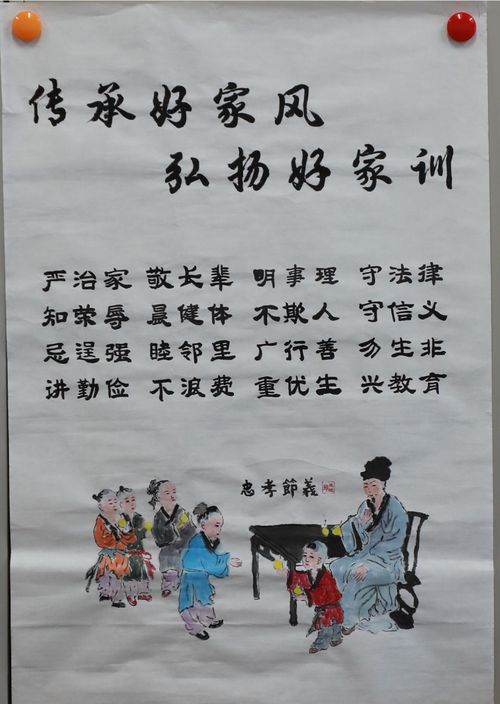 传承好家风
弘扬好家训
严治家 敬长辈 明事理 守法律
知荣辱 晨健体 不欺人 守信义
忌逞强 睦邻里 广行善 勿生非
讲勤俭 不浪费 重优生 兴教育
忠孝節義